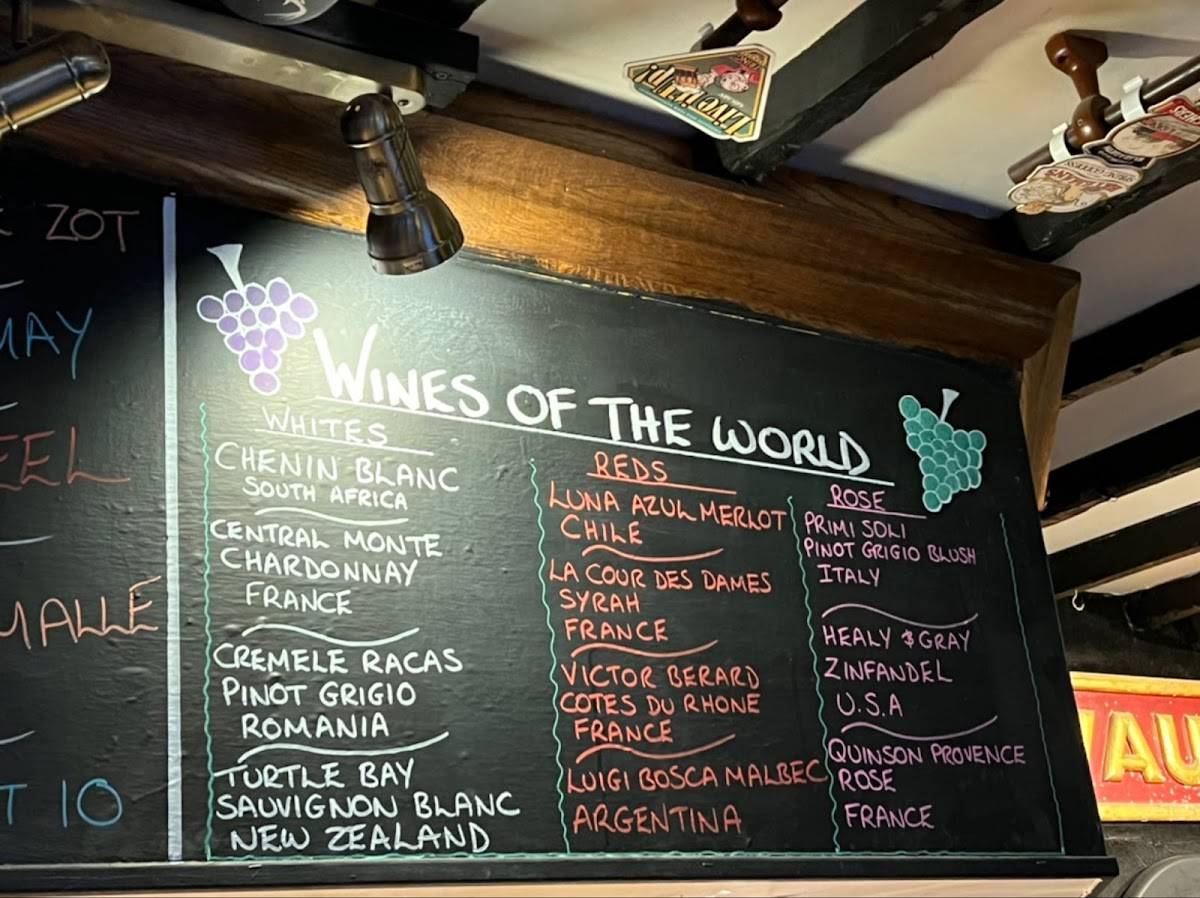 ZOT
MAY
EEL
MALLÉ
T 10
WINES OF THE WORLD
WHITES
CHENIN BLANC
SOUTH AFRICA
CENTRAL MONTE
CHARDONNAY
FRANCE
CREMELE RACAS
PINOT GRIGIO
ROMANIA
TURTLE BAY
SAUVIGNON BLANC
NEW ZEALAND
REDS
LUNA AZUL MERLOT
CHILE
LA COUR DES DAMES
SYRAH
FRANCE
VICTOR BERARD
COTES DU RHONE
FRANCE
LUIGI BOSCA MALBEC
ARGENTINA
ROSE
PRIMI SOLI
PINOT GRIGIO BLUSH
ITALY
HEALY & GRAY
ZINFANDEL
U.S.A
QUINSON PROVENCE
ROSE
FRANCE
AU